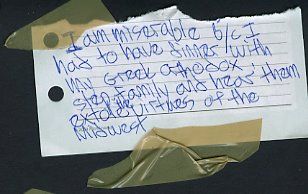 I am miserable b/c I
had to have dinner with
my Greek othodox
step family and hear them
extol the virtues of the
midwest